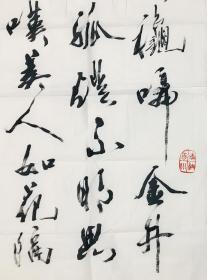 穐啼金井
孤燈不明思
嘆美人如花隔